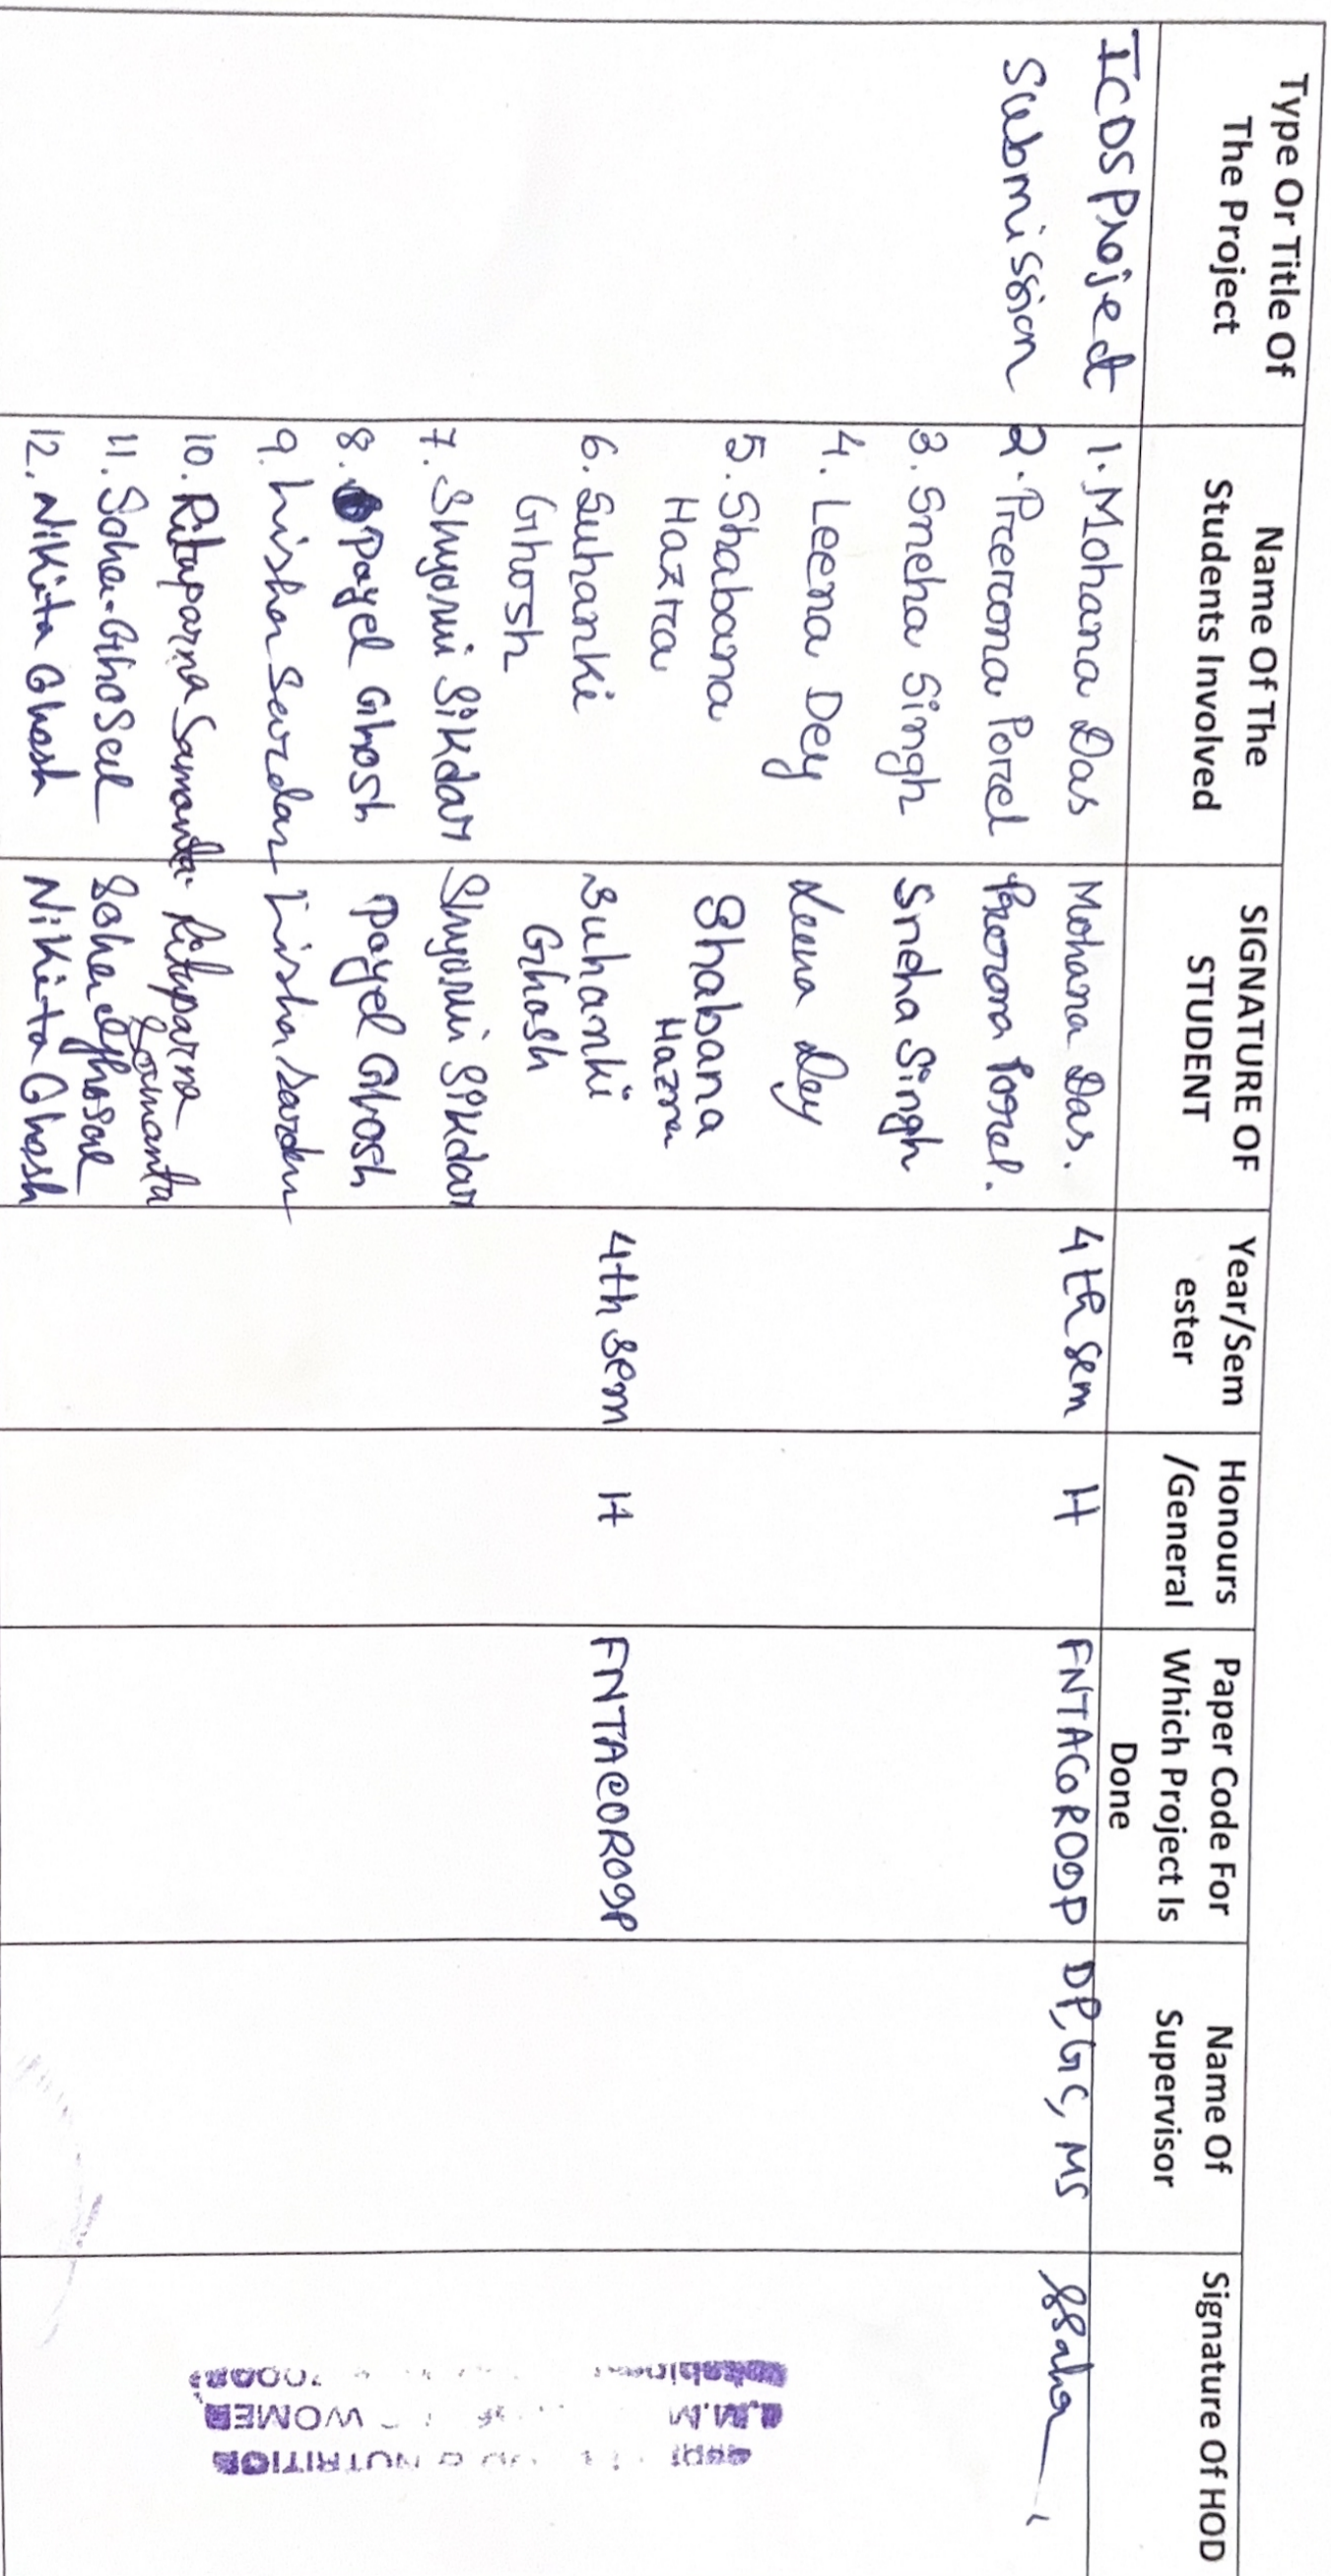 Type Or Title Of
The Project
Name Of The
Students Involved
SIGNATURE OF
STUDENT
Year/Sem
ester
Honours
/General
Paper Code For
Which Project Is
Done
Name Of
Supervisor
Signature Of HOD
ICDS Project
Submission
1. Mohana Das
Mohana Das.
4th sem
H
FNTACOR09P
DP, GC, MS
SSaha
2. Prerona Porel
Prerona Porel.
3. Sneha Singh
Sneha Singh
4. Leena Dey
Leena Dey
5. Shabana
Hazra
Shabana
Hazra
6. Suhanki
Ghosh
Suhanki
Ghosh
4th sem
H
FNTACOR09P
7. Shyamli Sikdar
Shyamli Sikdar
8. Payel Ghosh
Payel Ghosh
9. Lisha Sardar
Lisha Sardar
10. Rituparna Samanta.
Rituparna
Samanta
11. Soha Ghosal
Soha Ghosal
12. Nikita Ghosh
Nikita Ghosh
NUTRITION
WOMEN